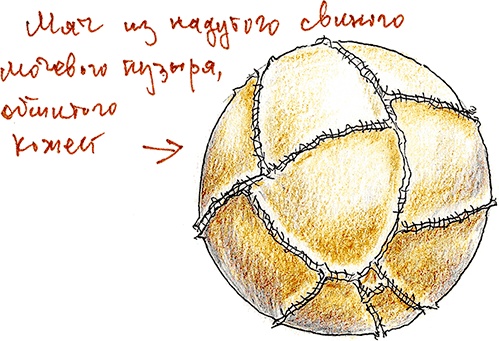 Мяч из надутого свиного
мочевого пузыря,
обшитого
кожей